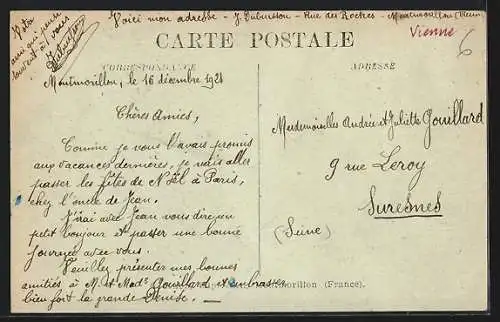 Voici mon adresse - J. Dubuisson - Rue des Roches - Montmorillon (Vienne)
Votre
amie qui pense
souvent à vous
JDubuisson
Vienne
6
CARTE POSTALE
CORRESPONDANCE
ADRESSE
Montmorillon, le 16 décembre 1921
Chères Amies,
Comme je vous l'avais promis
aux vacances dernières, je vais aller
passer les fêtes de Noël à Paris,
chez l'oncle de Jean.
J'irai avec Jean vous dire un
petit bonjour et passer une bonne
journée avec vous.
Veuillez présenter mes bonnes
amitiés à M. et Made Gouillard et embrasser
bien fort la grande Denise. —
Mesdemoiselles Andrée et Juliette Gouillard
9 rue Leroy
Suresnes
(Seine)
Montmorillon (France).